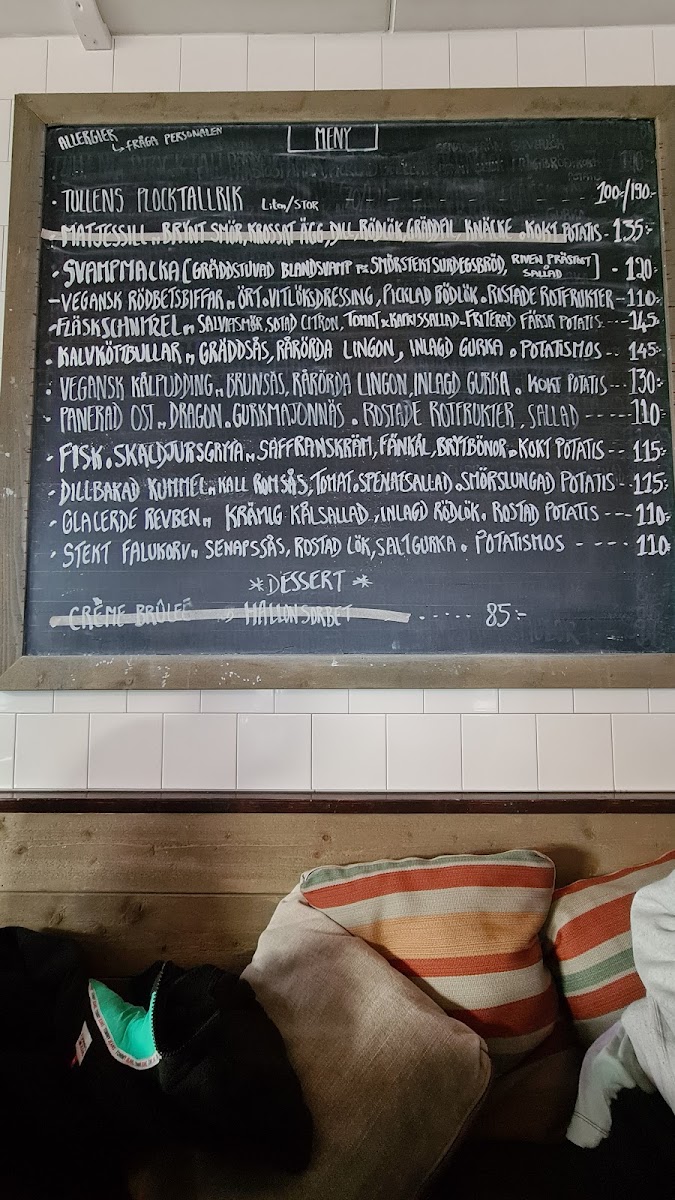 ALLERGIER
↳ FRÅGA PERSONALEN
MENY
· TULLENS PLOCKTALLRIK Liten/STOR - - - - - - 100:-/190:-
· MATJESSILL M. BRYNT SMÖR, KROSSAT ÄGG, DILL, RÖDLÖK, GRÄDDFIL, KNÄCKE & KOKT POTATIS - 135:-
· SVAMPMACKA [GRÄDDSTUVAD BLANDSVAMP PÅ SMÖRSTEKT SURDEGSBRÖD, RIVEN PRÄSTOST SALLAD] - 120:-
- VEGANSK RÖDBETSBIFFAR M ÖRT & VITLÖKSDRESSING, PICKLAD RÖDLÖK & ROSTADE ROTFRUKTER - 110:-
· FLÄSKSCHNITZEL M SALVIASMÖR, SOTAD CITRON, TOMAT & KAPRISSALLAD & FRITERAD FÄRSK POTATIS --- 145:-
· KALVKÖTTBULLAR M GRÄDDSÅS, RÅRÖRDA LINGON, INLAGD GURKA & POTATISMOS -- 145:-
· VEGANSK KÅLPUDDING M BRUNSÅS, RÅRÖRDA LINGON, INLAGD GURKA & KOKT POTATIS --- 130:-
· PANERAD OST M DRAGON & GURKMAJONNÄS & ROSTADE ROTFRUKTER, SALLAD ---- 110
· FISK & SKALDJURSGRYTA M SAFFRANSKRÄM, FÄNKÅL, BRYTBÖNOR & KOKT POTATIS -- 115:-
· DILLBAKAD KUMMEL M KALL ROMSÅS, TOMAT & SPENATSALLAD & SMÖRSLUNGAD POTATIS - 115:-
· GLACERDE REVBEN M KRÄMIG KÅLSALLAD, INLAGD RÖDLÖK & ROSTAD POTATIS --- 110:-
· STEKT FALUKORV M SENAPSSÅS, ROSTAD LÖK, SALTGURKA & POTATISMOS ---- 110:-
*DESSERT*
· CRÈME BRÛLEÉ , HALLONSORBET ----- 85:-